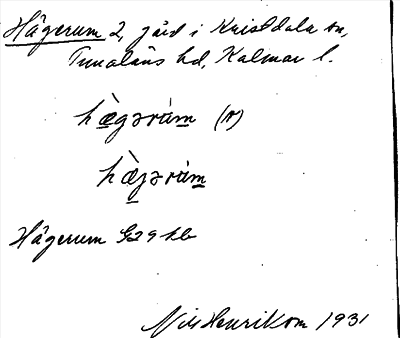 Hägerum 2, gård i Kristdala sn,
Tunaläns hd, Kalmar l.
hæ̀gərúm (A)
hæ̀gərúm
Hägerum G29 kb
Nils Henrikson 1931